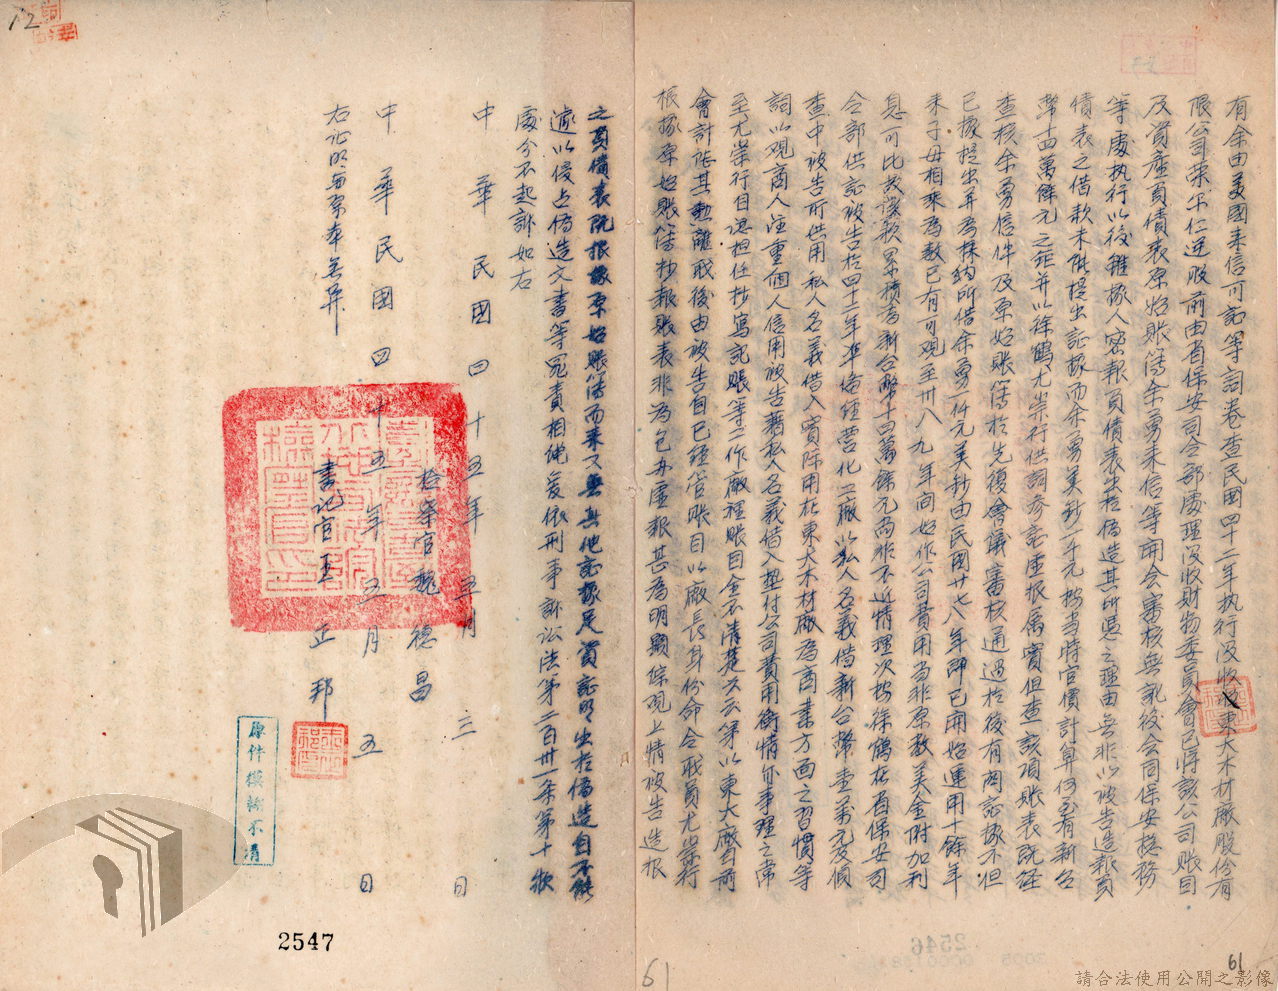 有余由美國来信可証等詞卷查民國四十二年執行没收東大木材廠股份有
限公司張尔仁逆股前由省保安司令部處理没收財物委員會已将該公司賬目
及資產負債表原始賬簿余勇来信等開会審核無訛後会同保安搜務
等處执行以後雖據人密報負債表出於偽造其所憑之理由無非以被告造報負
債表之借款未能提出証據而余勇美鈔一千元按当時官價計算何至有新台
幣十四萬餘元之鉅并以徐鶴尤崇行供詞参証虚报属實但查該項賬表既経
查核余勇信件及原始賬簿於先複會議審核通過於後有関証據不但
已據提出并為採納所借余勇一仟元美鈔由民國廿七八年即已開始運用十餘年
来子母相乘為数已有可观至卅八九年间始作公司費用為非原数美金附加利
息可比故該款累積為新台幣十四萬餘元尚非不近情理次按徐鶴在省保安司
令部供証被告於四十二年準備経营化工廠以私人名義借新台幣壹萬元及偵
查中被告所供用私人名義借入實际用在東大木材廠為商業方面之習慣等
詞以观商人注重個人信用被告藉私人名義借入墊付公司費用衡情亦事理之常
至尤崇行自認担任抄寫記賬等工作廠裡賬目全不清楚云云第以東大廠自前
會計張其勳離职後由被告自己経管賬目以廠長身份命令职員尤崇行
根據原始賬簿抄報賬表非為已办虚報甚為明顯綜观上情被告造报
之負債表既根據原始賬簿而来又無其他証據足資証明出於偽造自不能
遽以侵占偽造文書等罪責相绳爰依刑事訴訟法第二百卅一条第十款
處分不起訴如右
中華民國四十五年五月三日
檢察官魏德昌
中華民國四十五年五月五日
書記官王正邦
右证明与原本無異
原件模糊不清
12
2547
61
61
請合法使用公開之影像